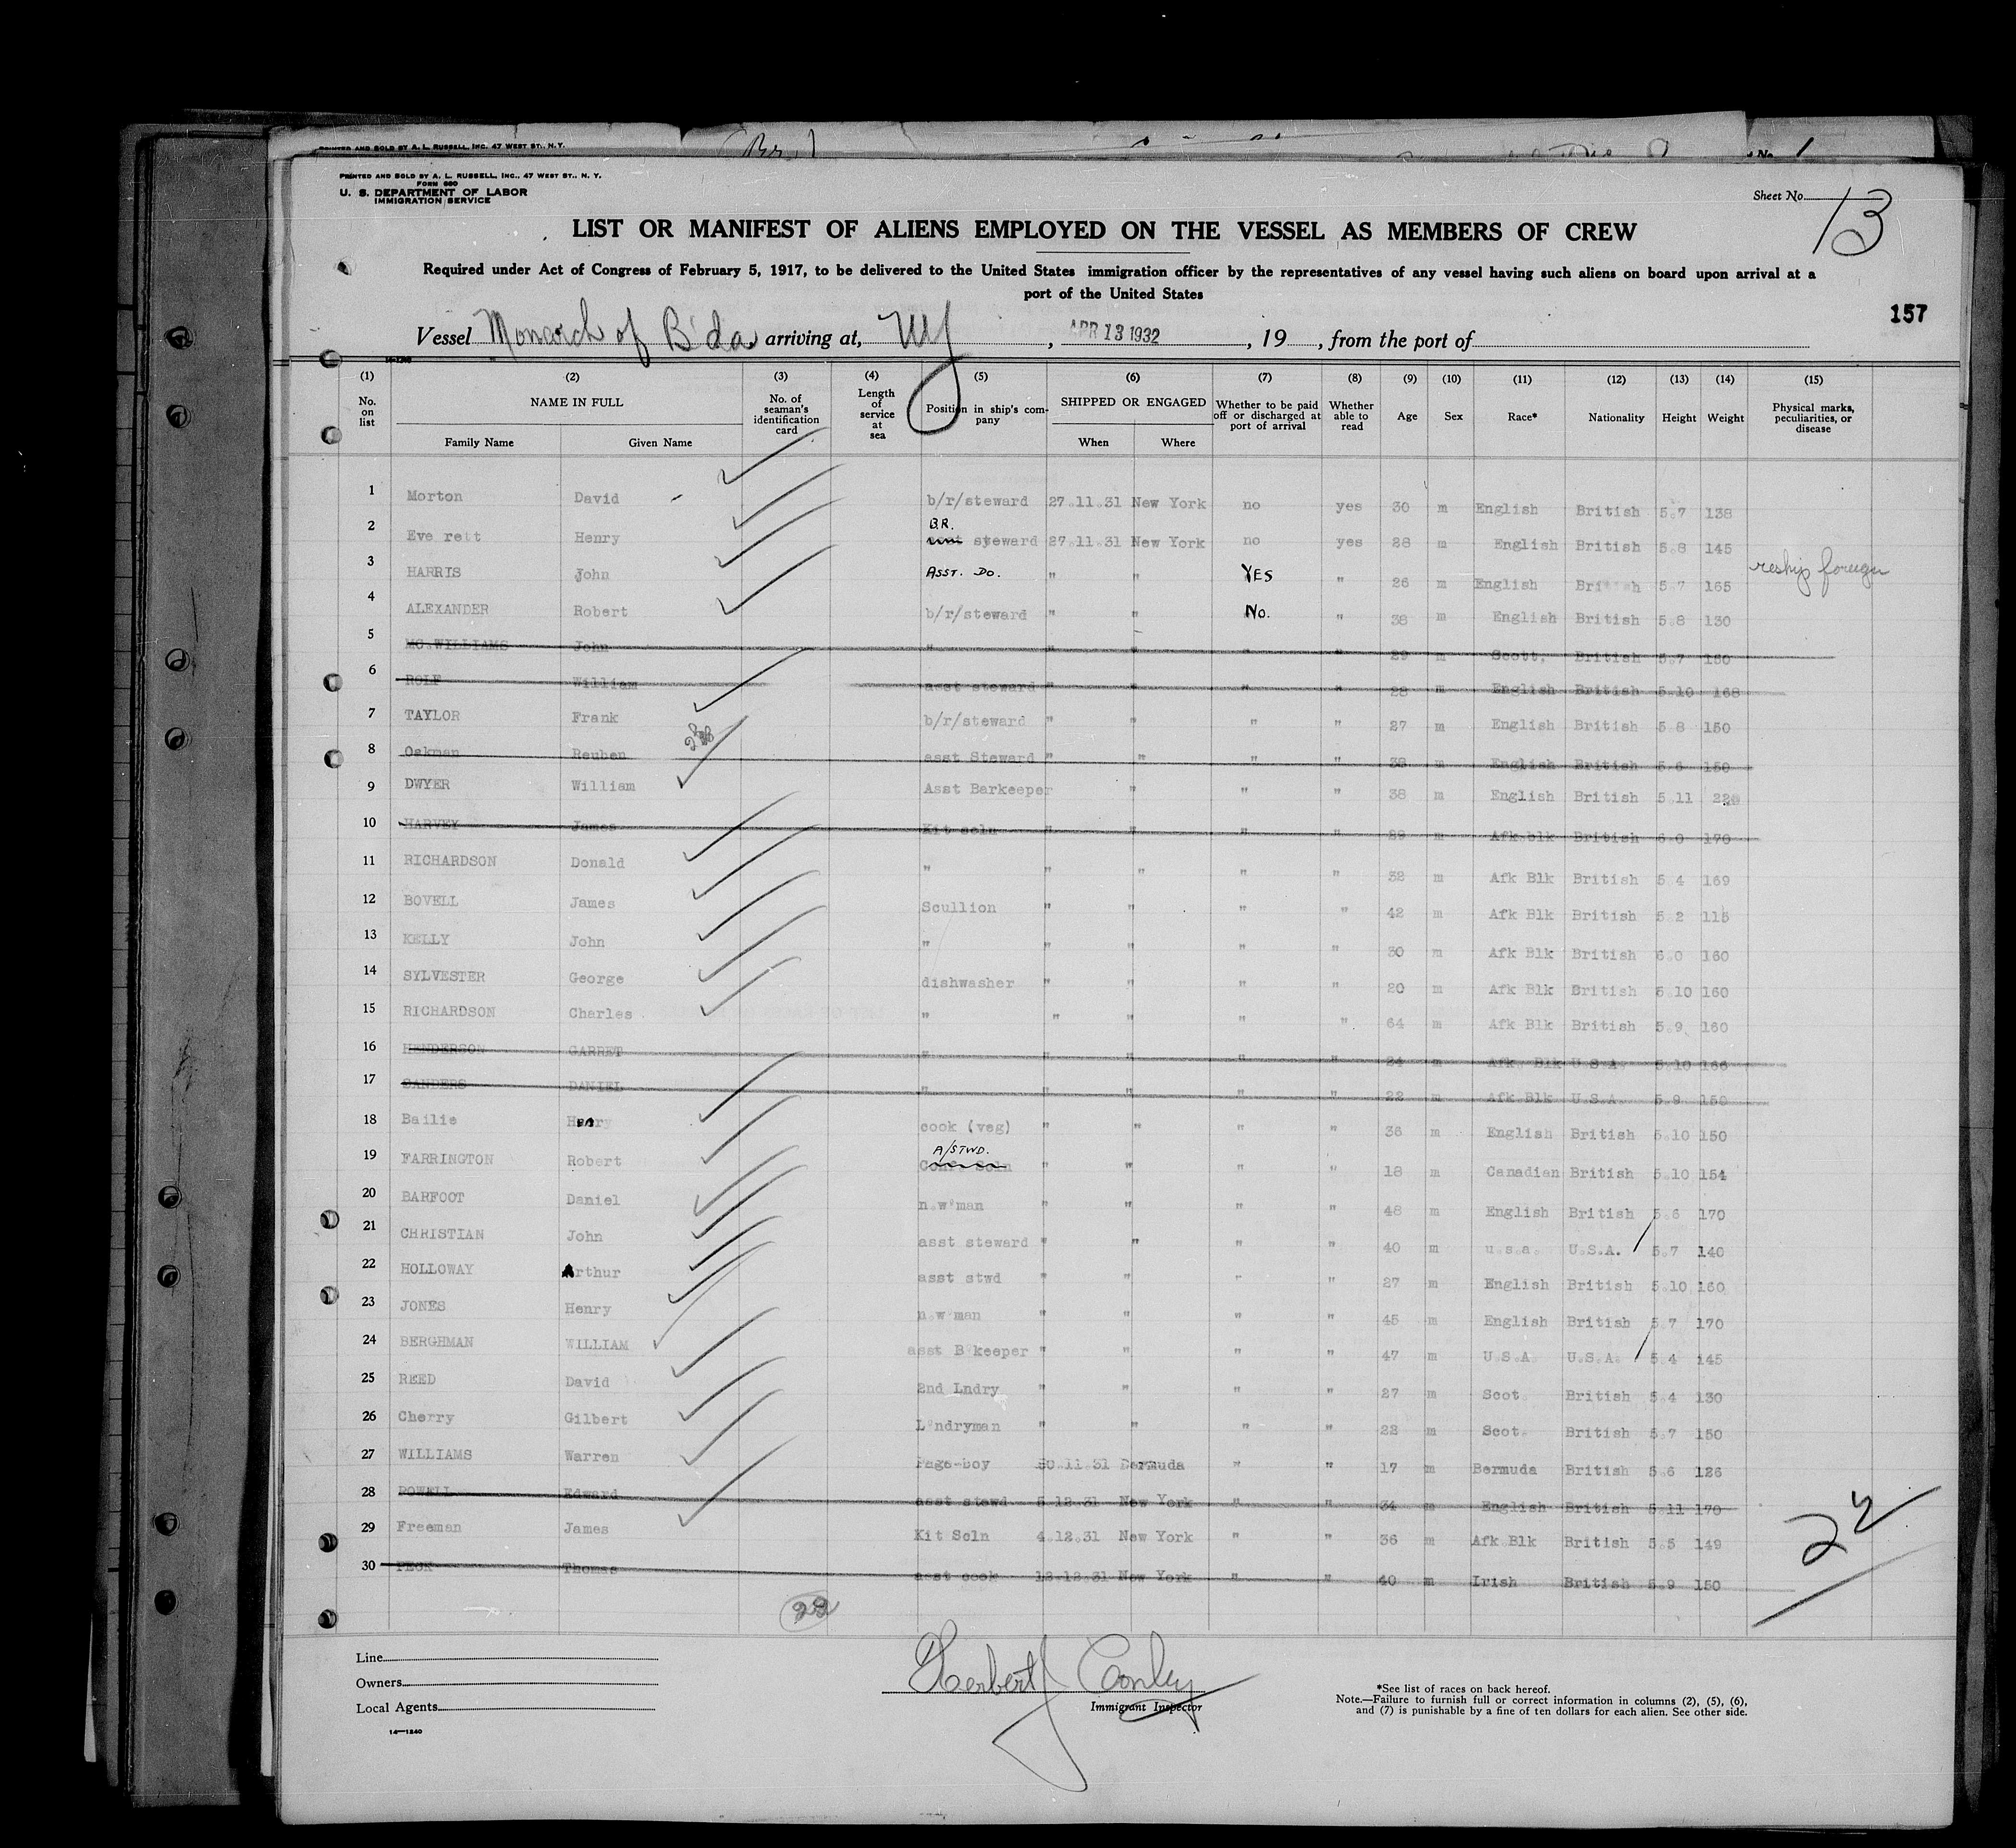 PRINTED AND SOLD BY A. L. RUSSELL, INC. 47 WEST ST., N.Y.
(Br.)
No. 1
PRINTED AND SOLD BY A. L. RUSSELL, INC., 47 WEST ST., N. Y.
FORM 680
U. S. DEPARTMENT OF LABOR
IMMIGRATION SERVICE
Sheet No. 13
LIST OR MANIFEST OF ALIENS EMPLOYED ON THE VESSEL AS MEMBERS OF CREW
Required under Act of Congress of February 5, 1917, to be delivered to the United States immigration officer by the representatives of any vessel having such aliens on board upon arrival at a
port of the United States
157
Vessel Monarch of B'da arriving at, NY, APR 13 1932, 19 , from the port of
14-1240
(1) (2) (3) (4) (5) (6) (7) (8) (9) (10) (11) (12) (13) (14) (15)
No. on list NAME IN FULL Family Name Given Name No. of seaman's identification card Length of service at sea Position in ship's company SHIPPED OR ENGAGED When Where Whether to be paid off or discharged at port of arrival Whether able to read Age Sex Race* Nationality Height Weight Physical marks, peculiarities, or disease
1 Morton David b/r/steward 27.11.31 New York no yes 30 m English British 5.7 138
B.R.
2 Eve rett Henry steward 27.11.31 New York no yes 28 m English British 5.8 145
3 HARRIS John ASST. DO. " " YES " 26 m English British 5.7 165 reship foreign
4 ALEXANDER Robert b/r/steward " " No. " 38 m English British 5.8 130
5 MC.WILLIAMS John " " " " " 29 m Scott. British 5.7 150
6 ROLF William asst steward " " " " 28 m English British 5.10 168
7 TAYLOR Frank b/r/steward " " " " 27 m English British 5.8 150
8 Oakman Reuben asst Steward " " " " 38 m English British 5.6 150
9 DWYER William Asst Barkeeper " " " 38 m English British 5.11 220
10 HARVEY James Kit scln " " " " 29 m Afk.blk British 6.0 170
11 RICHARDSON Donald " " " " " 32 m Afk Blk British 5.4 169
12 BOVELL James Scullion " " " " 42 m Afk Blk British 5.2 115
13 KELLY John " " " " " 30 m Afk Blk British 6.0 160
14 SYLVESTER George dishwasher " " " " 20 m Afk Blk British 5.10 160
15 RICHARDSON Charles " " " " " 64 m Afk Blk British 5.9 160
16 HENDERSON GARRET " " " " " 24 m Afk. Blk U.S.A. 5.10 166
17 SANDERS DANIEL " " " " " 22 m Afk Blk U.S.A. 5.9 150
18 Bailie Henry cook (veg) " " " " 36 m English British 5.10 150
A/STWD.
19 FARRINGTON Robert Conf. Scln " " " " 18 m Canadian British 5.10 154
20 BARFOOT Daniel n.w'man " " " " 48 m English British 5.6 170
21 CHRISTIAN John asst steward " " " " 40 m u.s.a. U.S.A. 5.7 140
22 HOLLOWAY Arthur asst stwd " " " " 27 m English British 5.10 160
23 JONES Henry n.w man " " " " 45 m English British 5.7 170
24 BERGHMAN WILLIAM asst B'keeper " " " " 47 m U.S.A U.S.A. 5.4 145
25 REED David 2nd Lndry " " " " 27 m Scot. British 5.4 130
26 Cherry Gilbert L'ndryman " " " " 22 m Scot. British 5.7 150
27 WILLIAMS Warren Page-boy 30.11.31 Bermuda " " 17 m Bermuda British 5.6 126
28 POWELL Edward asst stewd 5.12.31 New York " " 34 m English British 5.11 170
29 Freeman James Kit Scln 4.12.31 New York " " 36 m Afk Blk British 5.5 149
30 PECK Thomas asst cook 12.12.31 New York " " 40 m Irish British 5.9 150
22
22
Line
Owners
Local Agents
14-1240
Herbert J Conley
Immigrant Inspector
*See list of races on back hereof.
Note.—Failure to furnish full or correct information in columns (2), (5), (6),
and (7) is punishable by a fine of ten dollars for each alien. See other side.